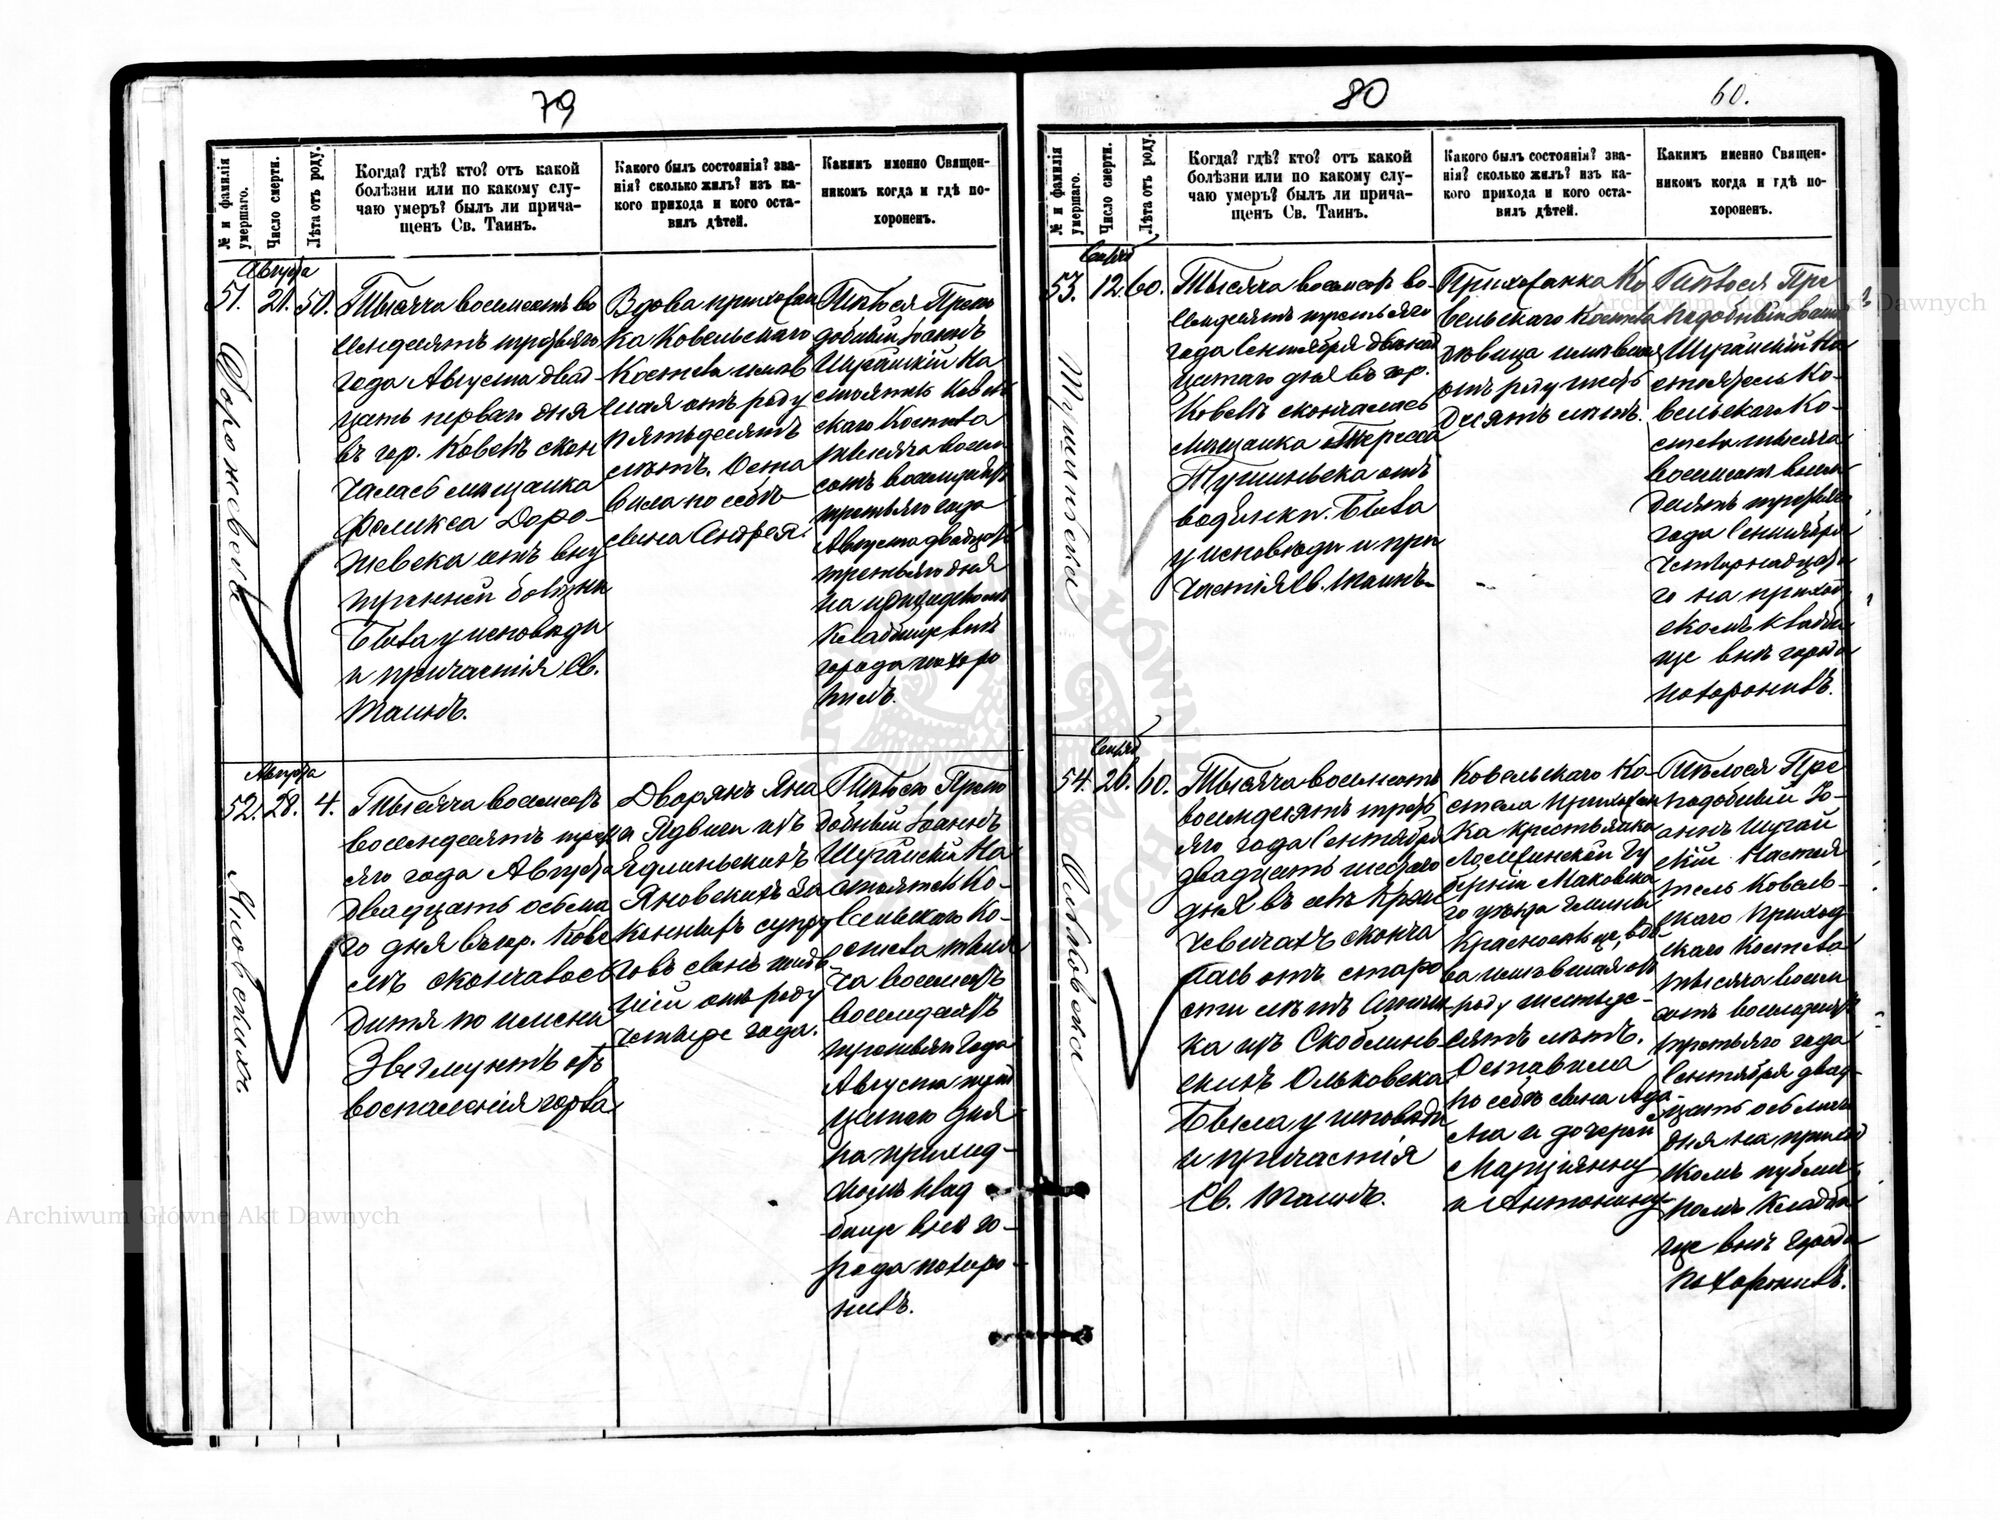 79
№ и фамилія умершаго.
Число смерти.
Лѣта отъ роду.
Когда? гдѣ? кто? отъ какой
болѣзни или по какому слу-
чаю умеръ? былъ ли прича-
щенъ Св. Таинъ.
Какого былъ состоянія? зва-
нія? сколько жилъ? изъ ка-
кого прихода и кого оста-
вилъ дѣтей.
Какимъ именно Священ-
никомъ когда и гдѣ по-
хороненъ.
Августа
51.
21.
50.
Тысяча восемсотъ во
семдесятъ третьяго
года Августа двад-
цать перваго дня
въ гор. Ковелѣ скон
чалась мѣщанка
Феликса Доро-
жевска отъ вну
тренней болѣзни
Была у исповѣди
и причастія Св.
Таинъ.
Вдова прихожан
ка Ковельскаго
Костела жив
шая отъ роду
пятьдесятъ
лѣтъ. Оста
вила по себѣ
сына Андрея.
Тѣлося Препо
добный Іоаннъ
Шугайскій На
стоятель Ковель
скаго Костела
тысяча восем
сотъ восемдесятъ
третьяго года
Августа двадцать
третьяго дня
на приходскомъ
кладбище внѣ
города похоро
нилъ.
Августа
52.
28.
4.
Яновскихъ
Тысяча восемсотъ
восемдесятъ треть
яго года Августа
двадцать осьма
го дня въ гор. Кове
лѣ скончалось
дитя по имени
Зыгмунтъ отъ
воспаленія горла
Дворянъ Яна
и Ядвиги изъ
Яновскихъ за
конныхъ супру
говъ сынъ жив
шій отъ роду
четыре года.
Тѣлося Препо
добный Іоаннъ
Шугайскій На
стоятель Ко-
вельскаго Ко-
стела тыся
ча восемсотъ
восемдесятъ
третьяго года
Августа трид
цатаго дня
на приход-
скомъ клад
бище внѣ го-
рода похоро-
нилъ.
80
60.
№ и фамилія умершаго.
Число смерти.
Лѣта отъ роду.
Когда? гдѣ? кто? отъ какой
болѣзни или по какому слу-
чаю умеръ? былъ ли прича-
щенъ Св. Таинъ.
Какого былъ состоянія? зва-
нія? сколько жилъ? изъ ка-
кого прихода и кого оста-
вилъ дѣтей.
Какимъ именно Священ-
никомъ когда и гдѣ по-
хороненъ.
53.
12.
60.
Тысяча восемсотъ во-
семдесятъ третьяго
года Сентября двѣнад
цатаго дня въ гор.
Ковелѣ скончалась
мѣщанка Тересса
отъ
Была
у исповѣди и при
частія Св. Таинъ
Прихожанка Ко
вельскаго Костела
дѣвица жившая
отъ роду шесть
десятъ лѣтъ.
Тѣлося Пре
подобный Іоаннъ
Шугайскій На
стоятель Ко-
вельскаго Ко-
стела тысяча
восемсотъ восем
десятъ третьяго
года Сентября
четырнадцата
го на приход
скомъ кладби
ще внѣ города
похоронилъ.
54.
26.
60.
Ольковска
Тысяча восемсотъ
восемдесятъ треть
яго года Сентября
двадцать шестаго
дня въ селѣ
сконча
лась отъ старо
сти лѣтъ
изъ Скоблинь-
скихъ Ольковска
Была у исповѣди
и причастія
Св. Таинъ.
Ковельскаго Ко-
стела прихожан
ка крестьянка
Ломжинской Гу
берніи Маковска
го уѣзда Гмины
жившая отъ
роду шестьде-
сятъ лѣтъ.
Оставила
по себѣ сына Ада
ма и дочерей
Марціянну
и Антонину
Тѣлося Пре
подобный Іо-
аннъ Шугай
скій Настоя
тель Ковель-
скаго Приход
скаго Костела
тысяча восем
сотъ восемдесятъ
третьяго года
Сентября двад-
цать осьмаго
дня на приход
скомъ
кладби
ще внѣ города
похоронилъ.
Archiwum Główne Akt Dawnych
Archiwum Główne Akt Dawnych